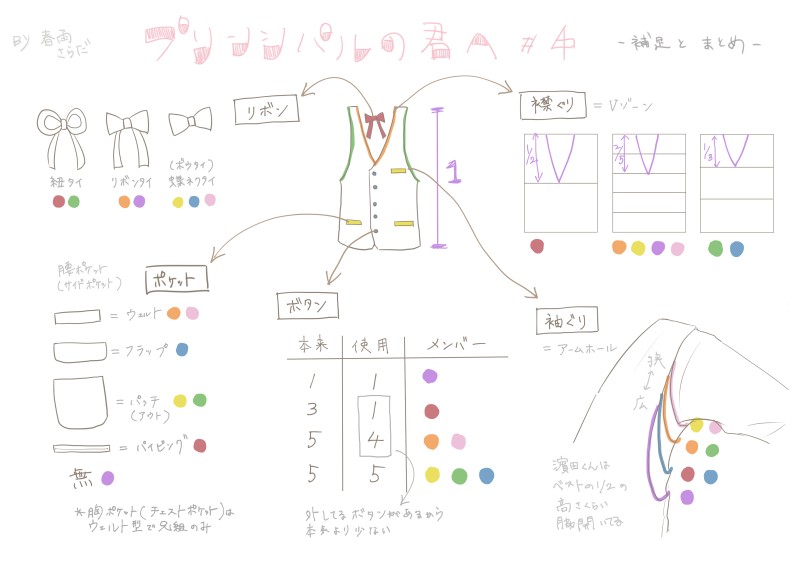 BY 春雨さらだ
プリンシパルの君へ #4
- 補足と まとめ -
リボン
紐タイ
リボンタイ
(ボウタイ)
蝶ネクタイ
1
襟ぐり = Vゾーン
1/2
2/5
1/3
腰ポケット
(サイドポケット)
ポケット
= ウェルト
= フラップ
= パッチ
(アウト)
= パイピング
無
*胸ポケット(チェストポケット)は
ウェルト型で兄組のみ
ボタン
本来 使用 メンバー
1 1
3 1
5 4
5 5
外してるボタンがあるから
本来より少ない
袖ぐり
= アームホール
狭
広
濵田くんは
ベストの1/2の
高さくらい
脇開いてる